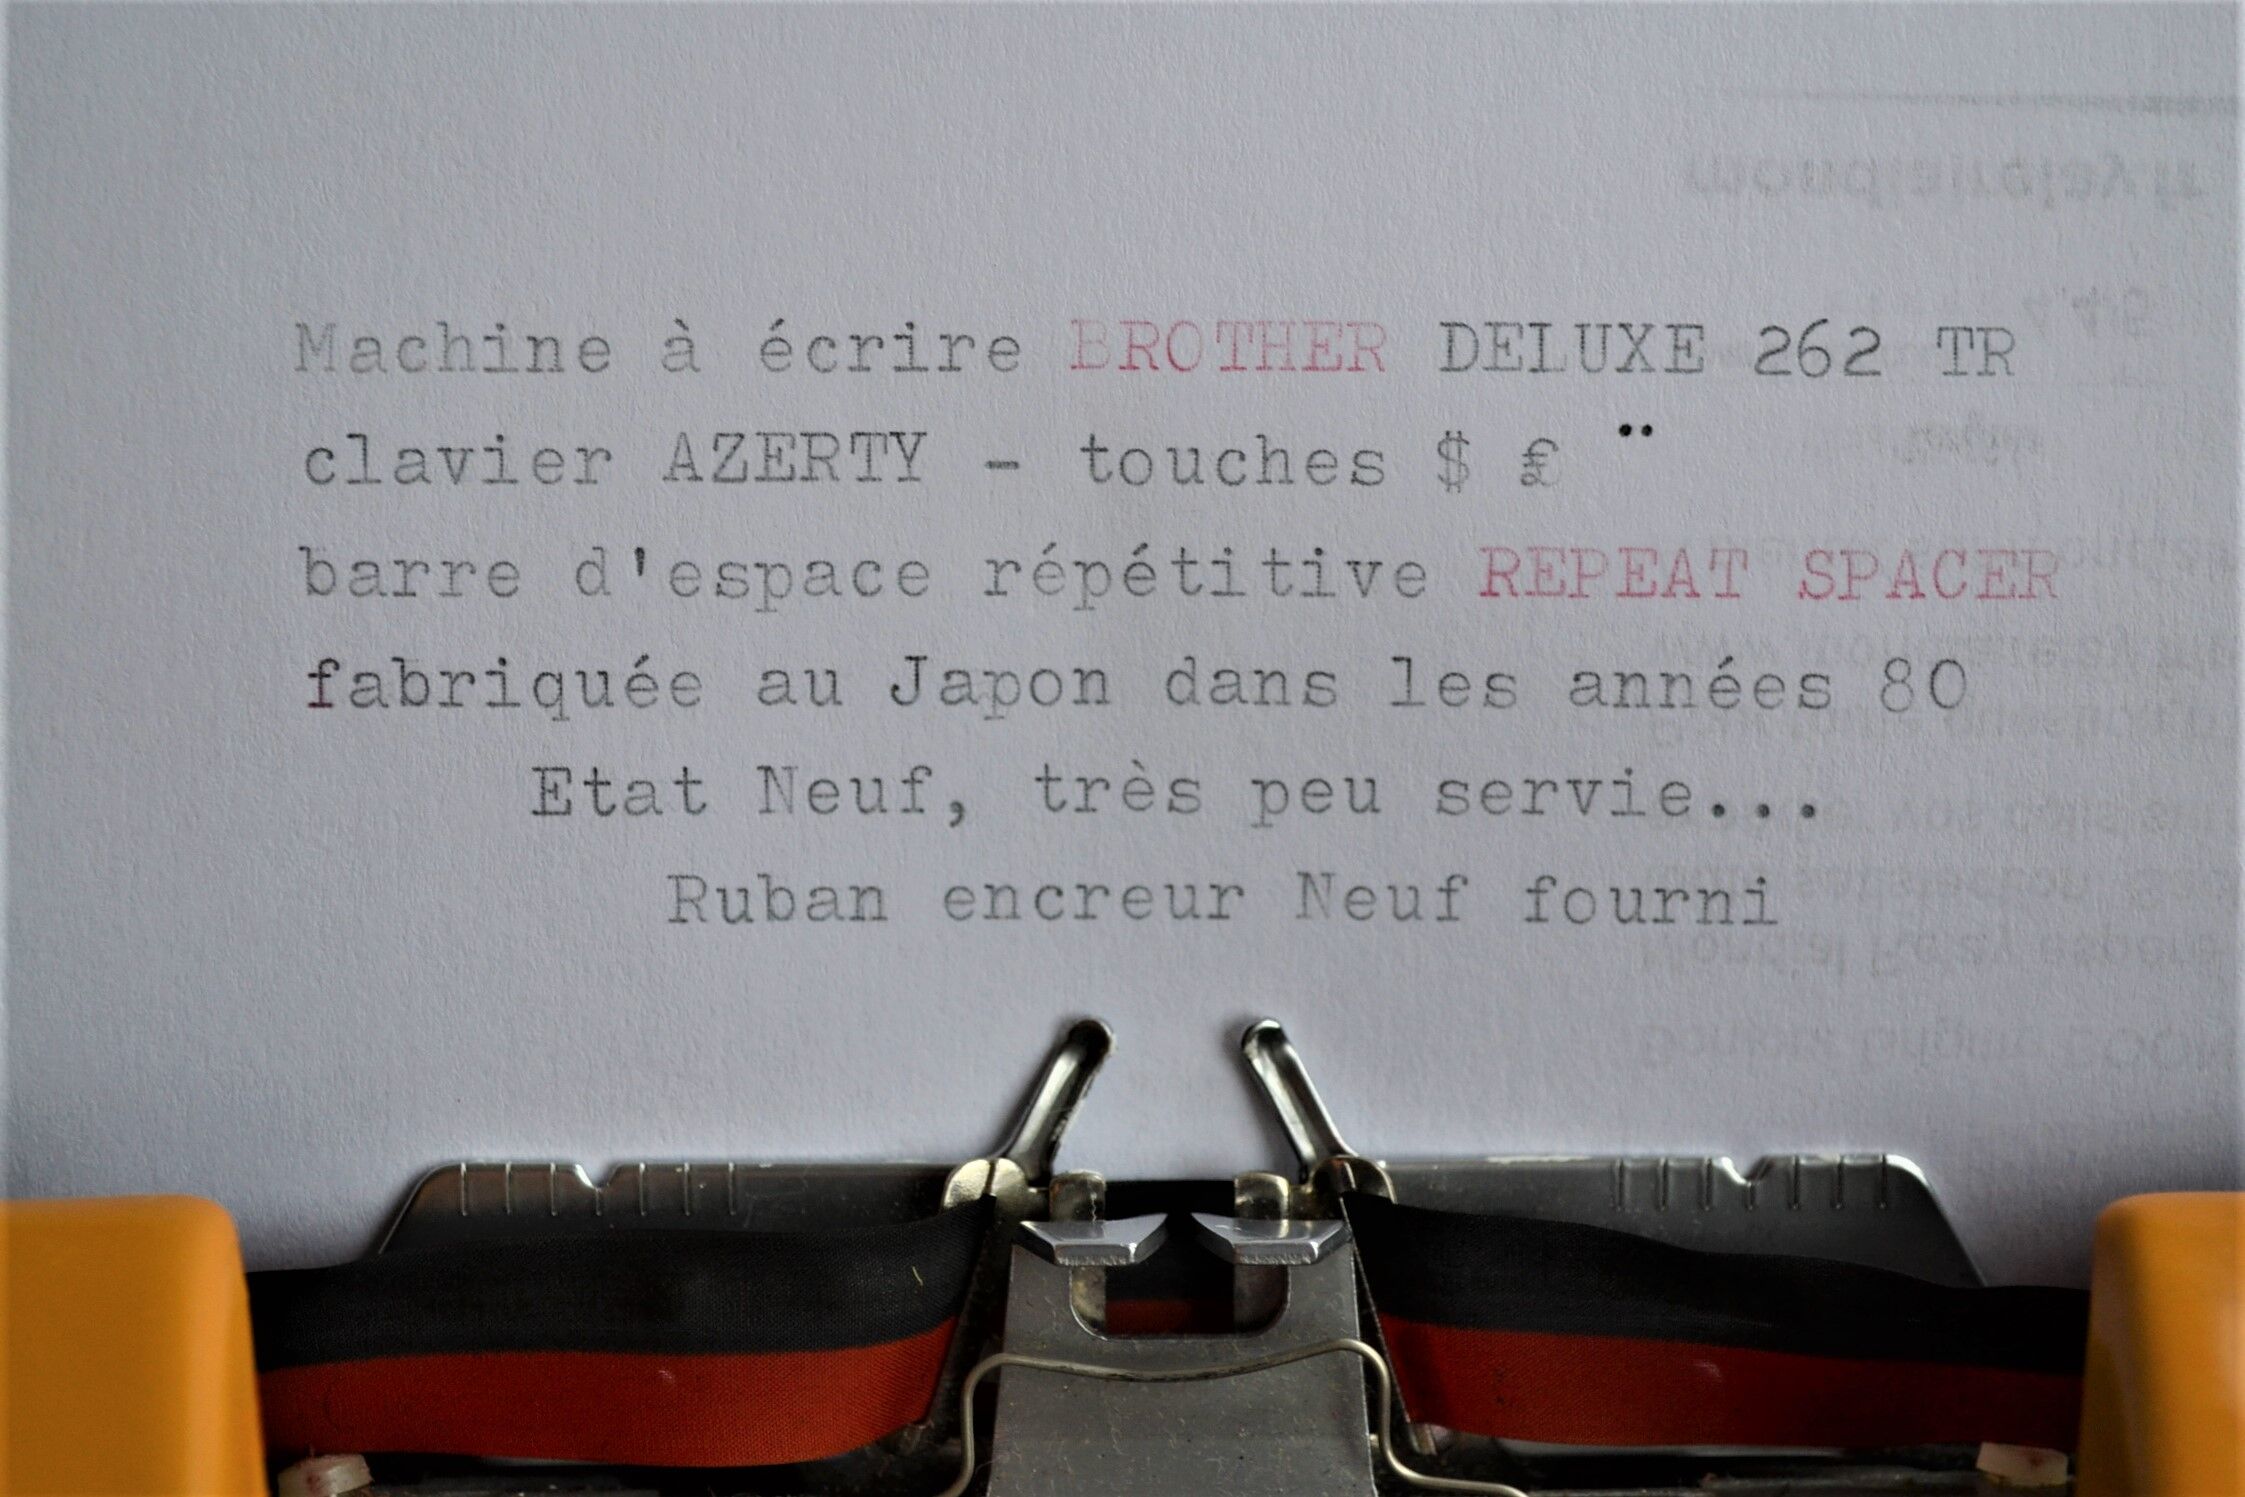 Machine à écrire BROTHER DELUXE 262 TR
clavier AZERTY - touches $ £ ¨
barre d'espace répétitive REPEAT SPACER
fabriquée au Japon dans les années 80
Etat Neuf, très peu servie...
Ruban encreur Neuf fourni